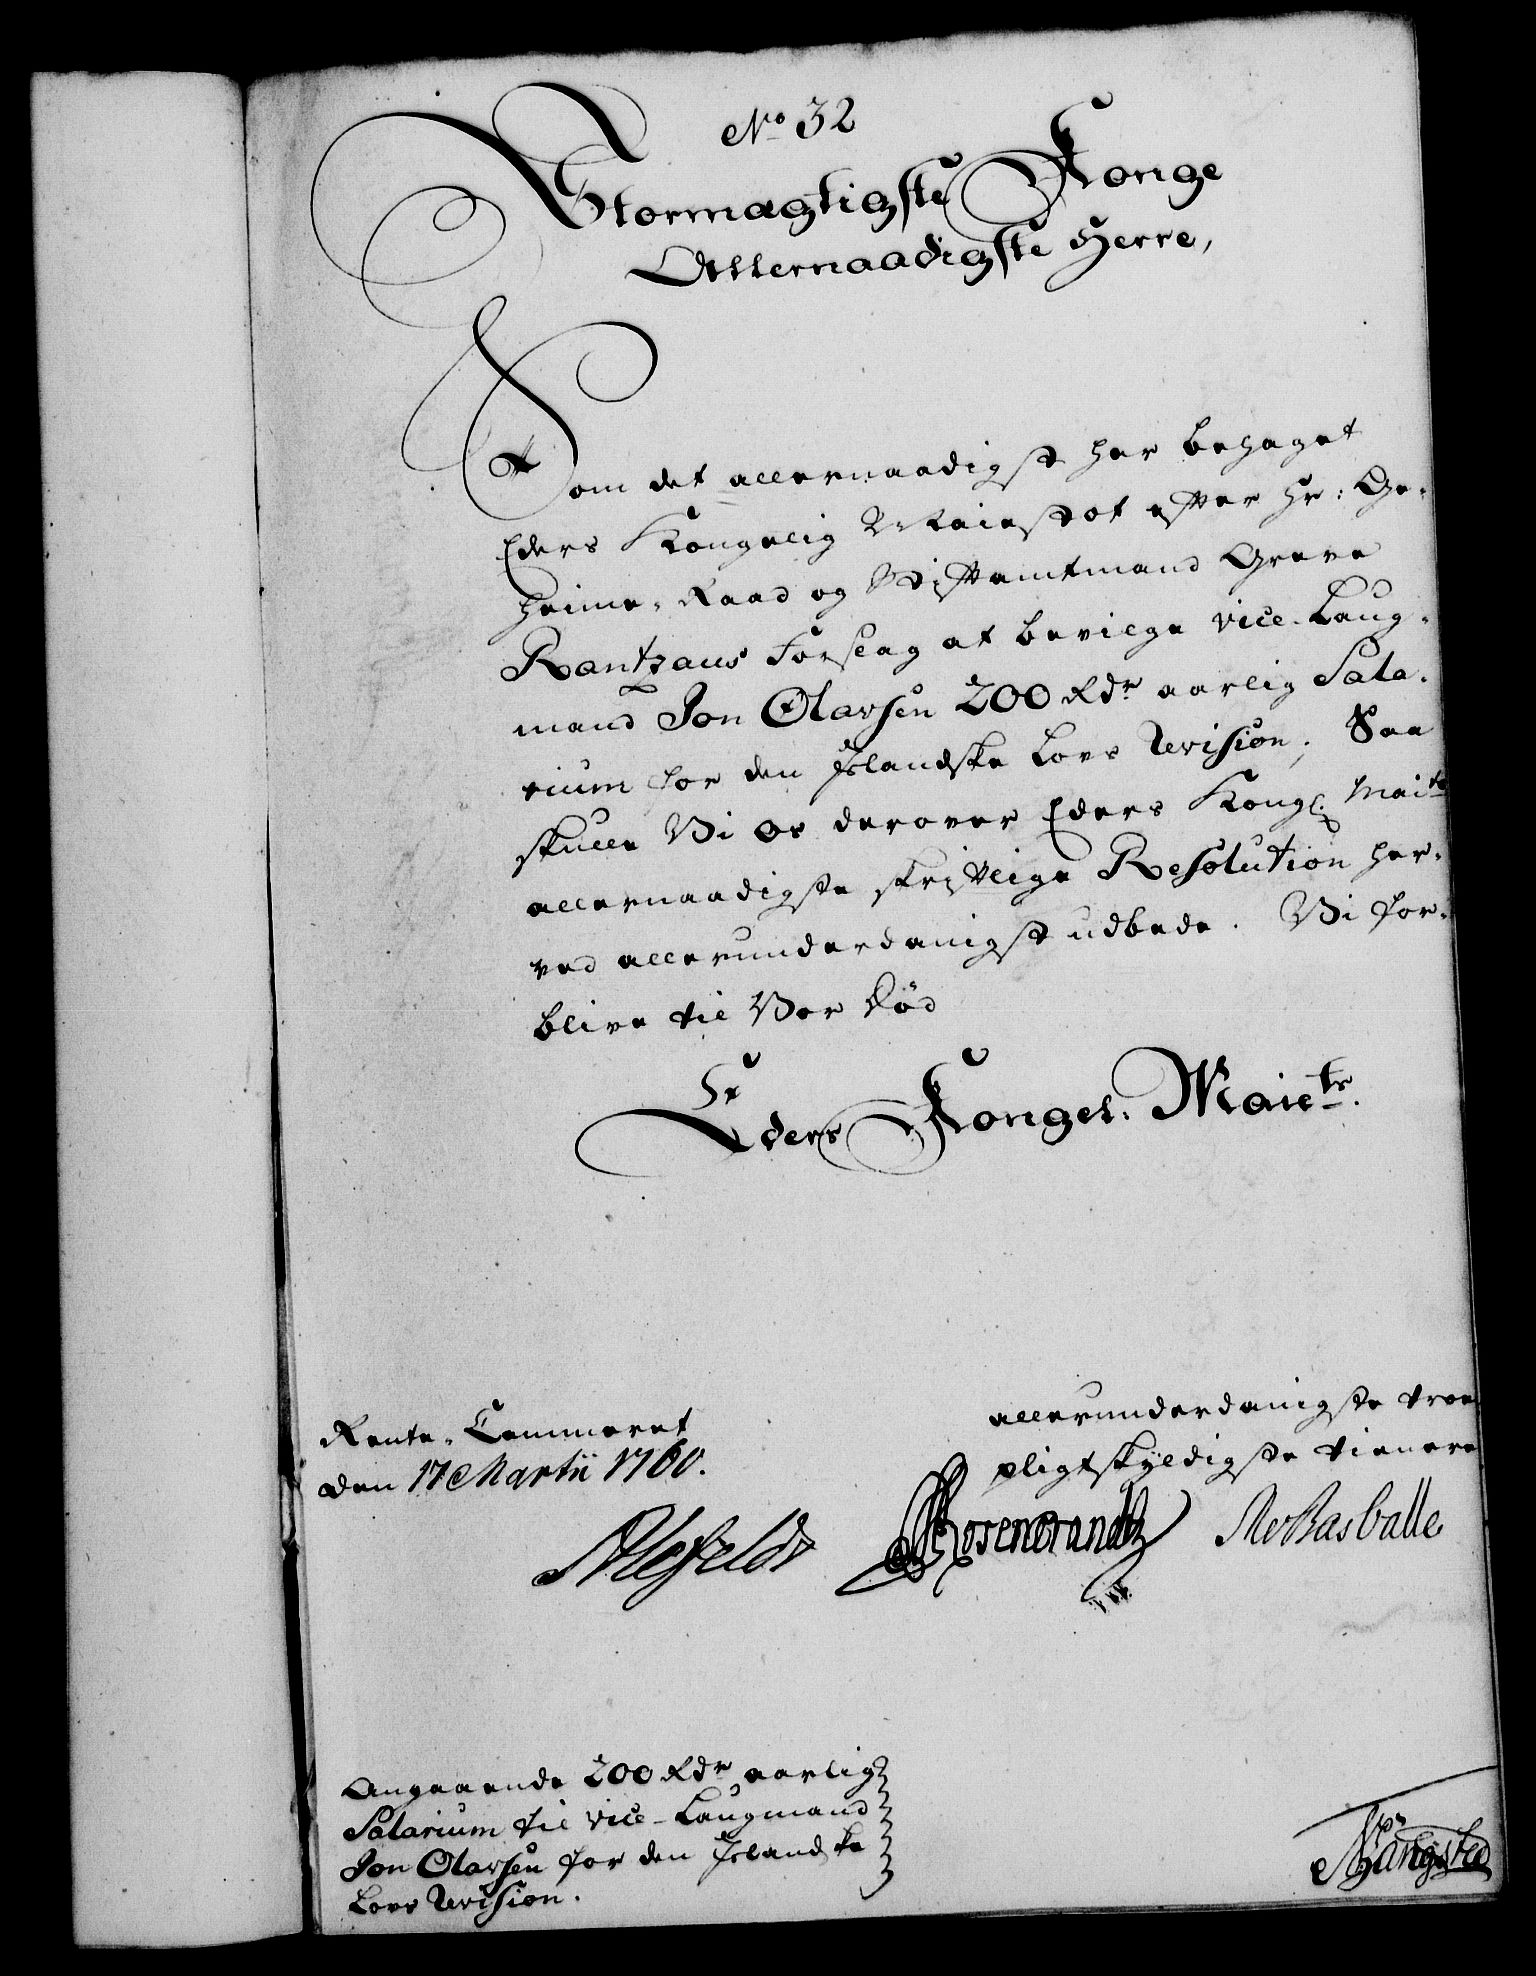 No 32
Stormægtigste Konge
Allernaadigste Herre,
Som det allernaadigst har behaget
Eders Kongelig Maiestæt efter Hr: Ge-
heime-Raad og Stiftamtmand Greve
Rantzaus Forslag at bevilge vice-Laug-
mand Jon Olavsen 200 Rdr aarlig Sala-
rium for den Islandske Lovs Revision; Saa
skulle Vi os derover Eders Kongl: Maits
allernaadigste skriftlige Resolution her-
ved allerunderdanigst udbede. Vi for-
blive til Vor Død
Eders Kongel: Maiets.
Rente-Cammeret
den 17 Martii 1760.
allerunderdanigste troe
pligtskyldigste tienere
Ahlefeldt
Rosencrandtz
Rasballe
Angaaende 200 Rdr aarlig
Salarium til vice-Laugmand
Jon Olavsen for den Islandske
Lovs Revision.